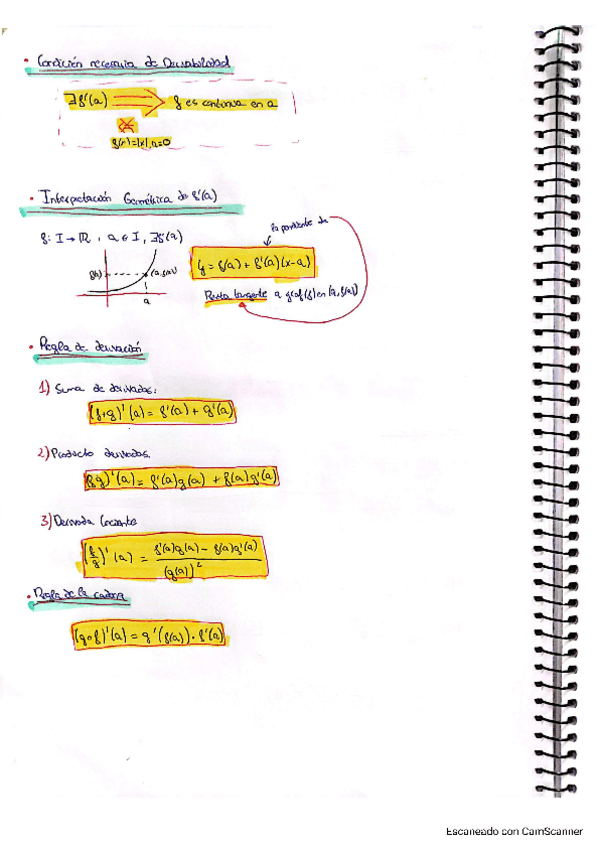 • Condición necesaria de Derivabilidad
∃f'(a) ⟹ f es continua en a
f(x)=|x|, a=0
• Interpretación Geométrica de f'(a)
f: I → ℝ, a ∈ I, ∃f'(a)
la pendiente de
f(a) (a, f(a))
a
y = f(a) + f'(a)(x-a)
Recta tangente a graf(f) en (a, f(a))
• Regla de derivación
1) Suma de derivadas:
(f+g)'(a) = f'(a) + g'(a)
2) Producto derivadas.
(fg)'(a) = f'(a)g(a) + f(a)g'(a)
3) Derivada Cociente
(f/g)'(a) = f'(a)g(a) - f(a)g'(a) / (g(a))²
• Regla de la cadena
(g∘f)'(a) = g'(f(a)) · f'(a)
Escaneado con CamScanner